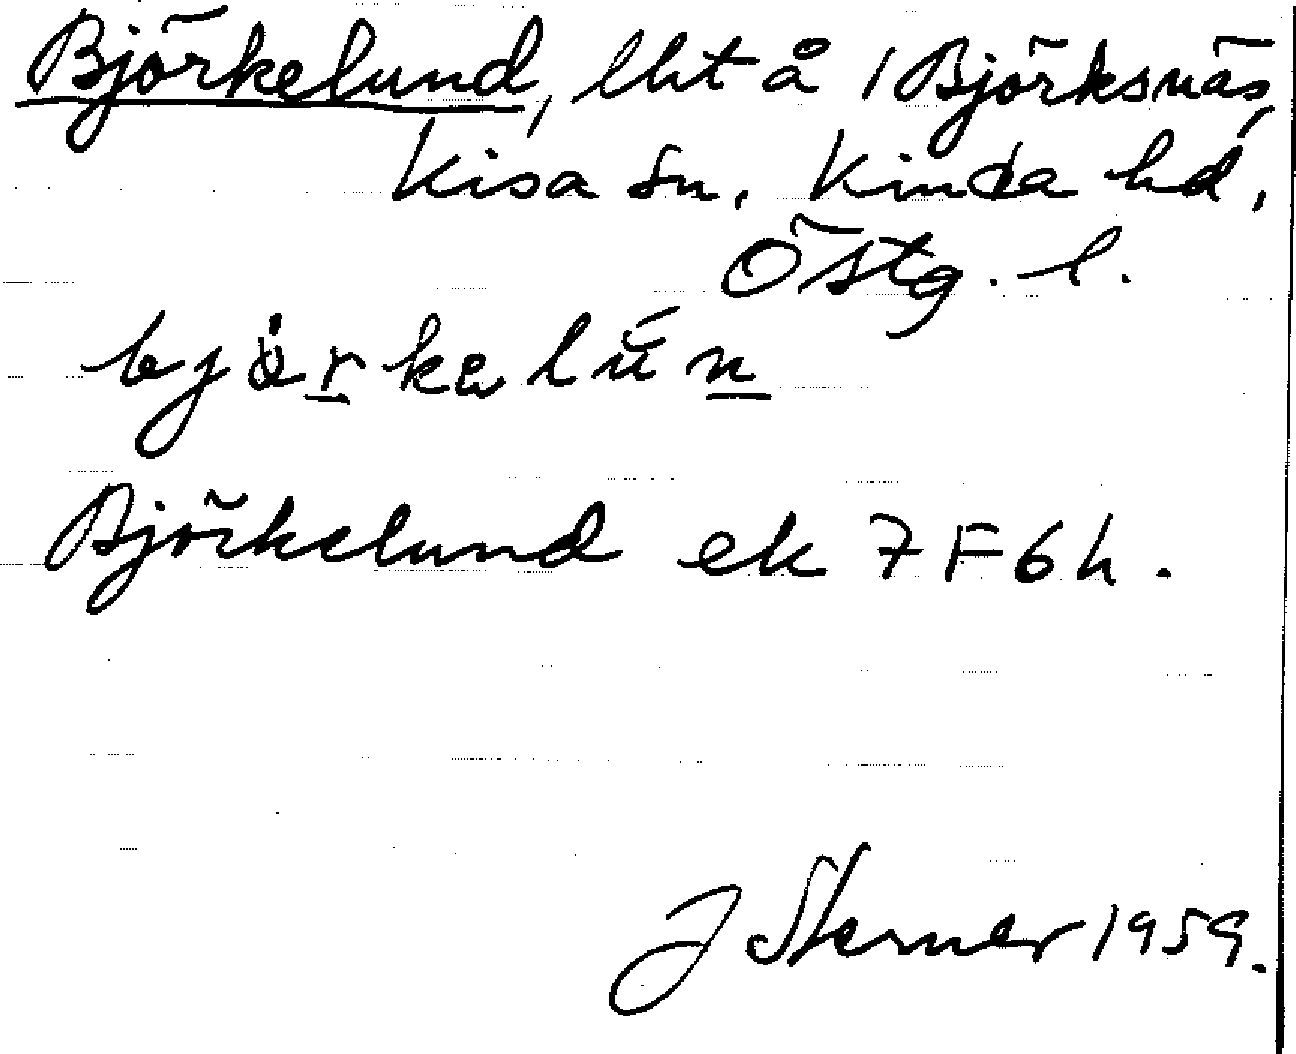 Björkelund, lht å 1 Björksnäs,
Kisa sn. Kinda hd,
Östg. l.
Björkelund ek 7F6h.
J Sterner 1959.